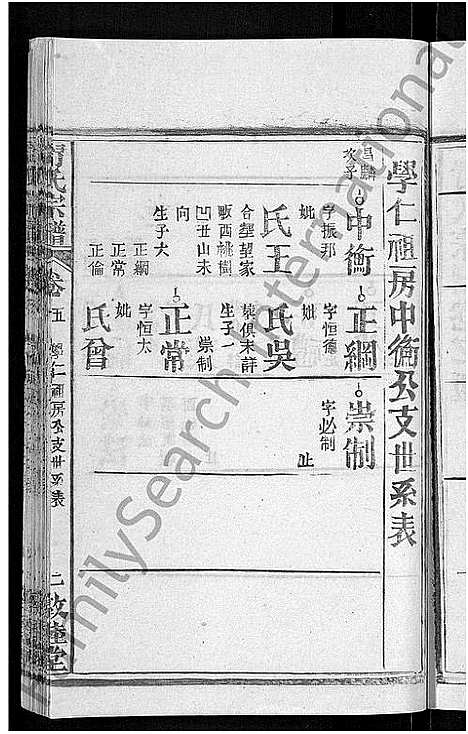 學仁禮房中衡公支世系表
昌麟
次子
中衡
字振邦
妣
王氏
合塟望家
畈西桃樹
凹丑山未
向
生子六
正綱
正常
正倫
正綱
字恒德
妣
吳氏
塟俱未詳
生子一
崇制
正常
字恒太
妣
曾氏
崇制
字必制
止
氏宗譜
卷五
學仁禮房公支世系表
二
敦睦堂
FamilySearch International